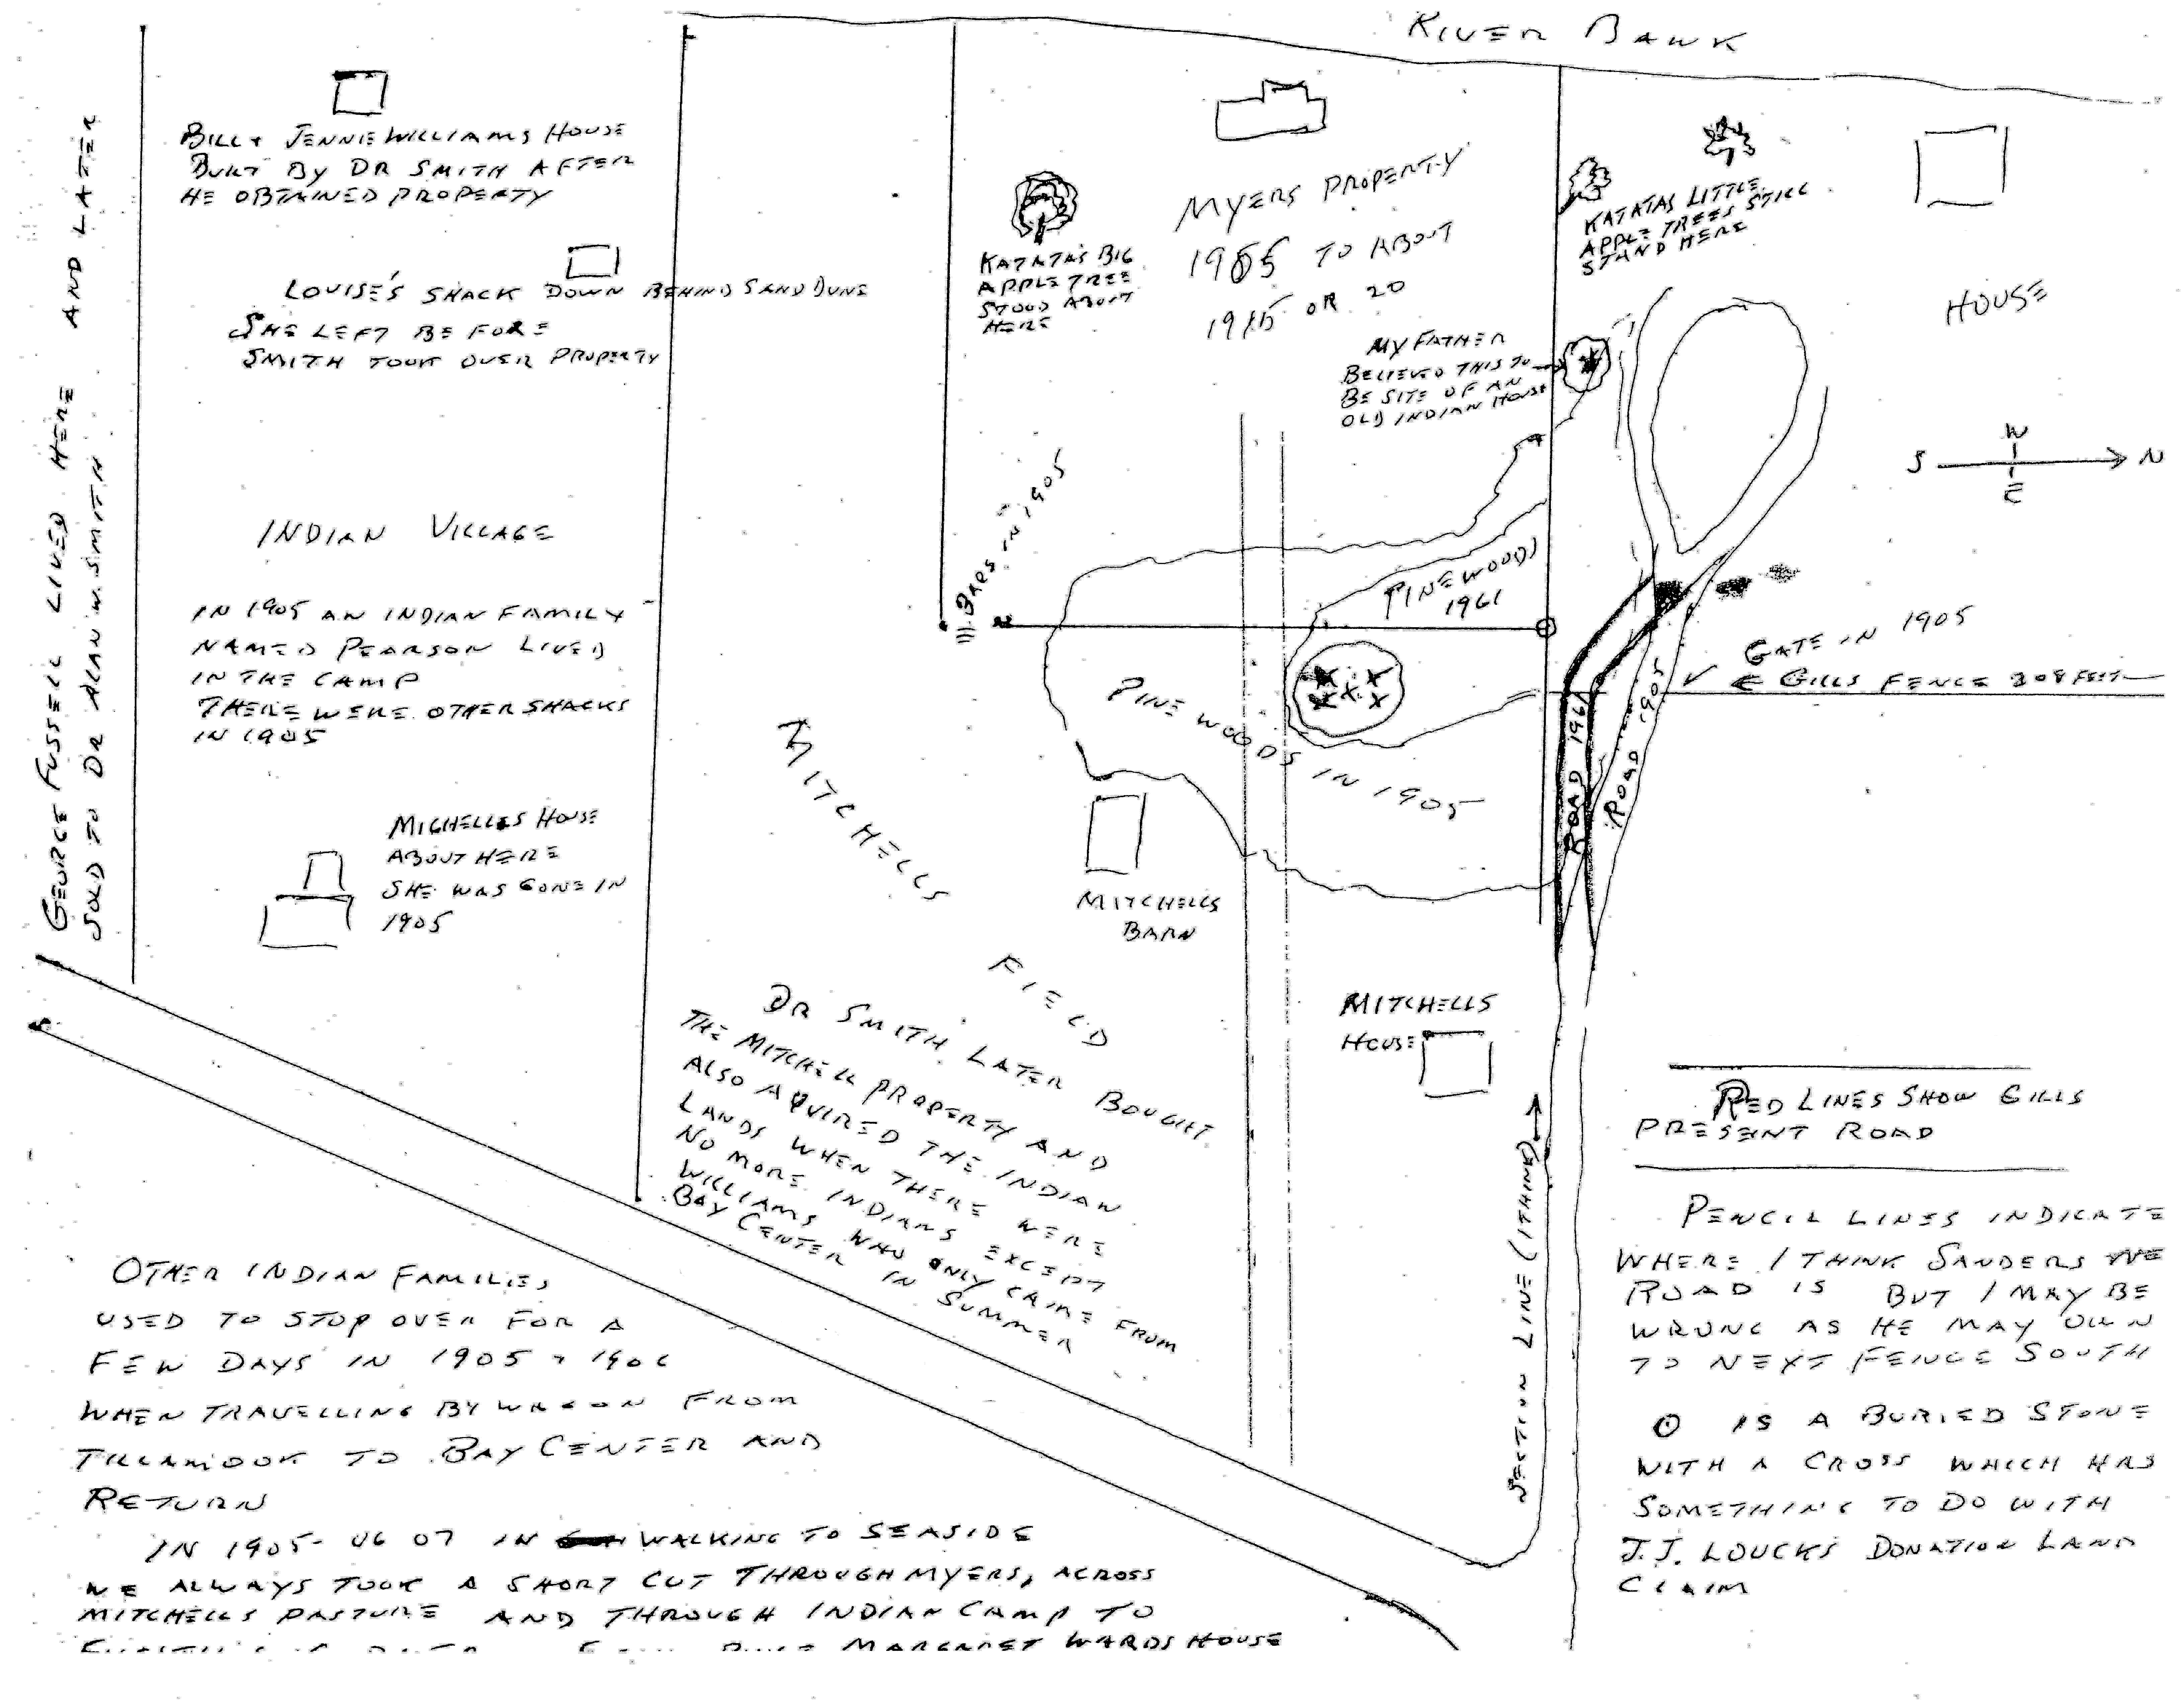 RIVER BANK
GEORGE FUSSELL LIVED HERE AND LATER
SOLD TO DR ALAN W. SMITH
BILL & JENNIE WILLIAMS HOUSE
BUILT BY DR SMITH AFTER
HE OBTAINED PROPERTY
LOUISE'S SHACK DOWN BEHIND SAND DUNE
SHE LEFT BEFORE
SMITH TOOK OVER PROPERTY
INDIAN VILLAGE
IN 1905 AN INDIAN FAMILY
NAMED PEARSON LIVED
IN THE CAMP
THERE WERE OTHER SHACKS
IN 1905
MICHELLES HOUSE
ABOUT HERE
SHE WAS GONE IN
1905
KATATA'S BIG
APPLE TREE
STOOD ABOUT
HERE
MYERS PROPERTY
1905 TO ABOUT
1915 OR 20
MY FATHER
BELIEVED THIS TO
BE SITE OF AN
OLD INDIAN HOUSE
KATATAS LITTLE
APPLE TREES STILL
STAND HERE
HOUSE
W
S N
E
BARS IN 1905
PINE WOODS
1961
PINE WOODS IN 1905
GATE IN 1905
GILLS FENCE 208 FEET
ROAD 1961
ROAD 1905
MITCHELLS
FIELD
MITCHELLS
BARN
MITCHELLS
HOUSE
DR SMITH LATER BOUGHT
THE MITCHELL PROPERTY AND
ALSO AQUIRED THE INDIAN
LANDS WHEN THERE WERE
NO MORE INDIANS EXCEPT
WILLIAMS WHO ONLY CAME FROM
BAY CENTER IN SUMMER
SECTION LINE (I THINK)
RED LINES SHOW GILLS
PRESENT ROAD
PENCIL LINES INDICATE
WHERE I THINK SANDERS
ROAD IS BUT I MAY BE
WRONG AS HE MAY OWN
TO NEXT FENCE SOUTH
O IS A BURIED STONE
WITH A CROSS WHICH HAS
SOMETHING TO DO WITH
J.J. LOUCKS DONATION LAND
CLAIM
OTHER INDIAN FAMILIES
USED TO STOP OVER FOR A
FEW DAYS IN 1905 & 1906
WHEN TRAVELLING BY WAGON FROM
TILLAMOOK TO BAY CENTER AND
RETURN
IN 1905-06 07 IN WALKING TO SEASIDE
WE ALWAYS TOOK A SHORT CUT THROUGH MYERS, ACROSS
MITCHELLS PASTURE AND THROUGH INDIAN CAMP TO
MARGARET WARDS HOUSE